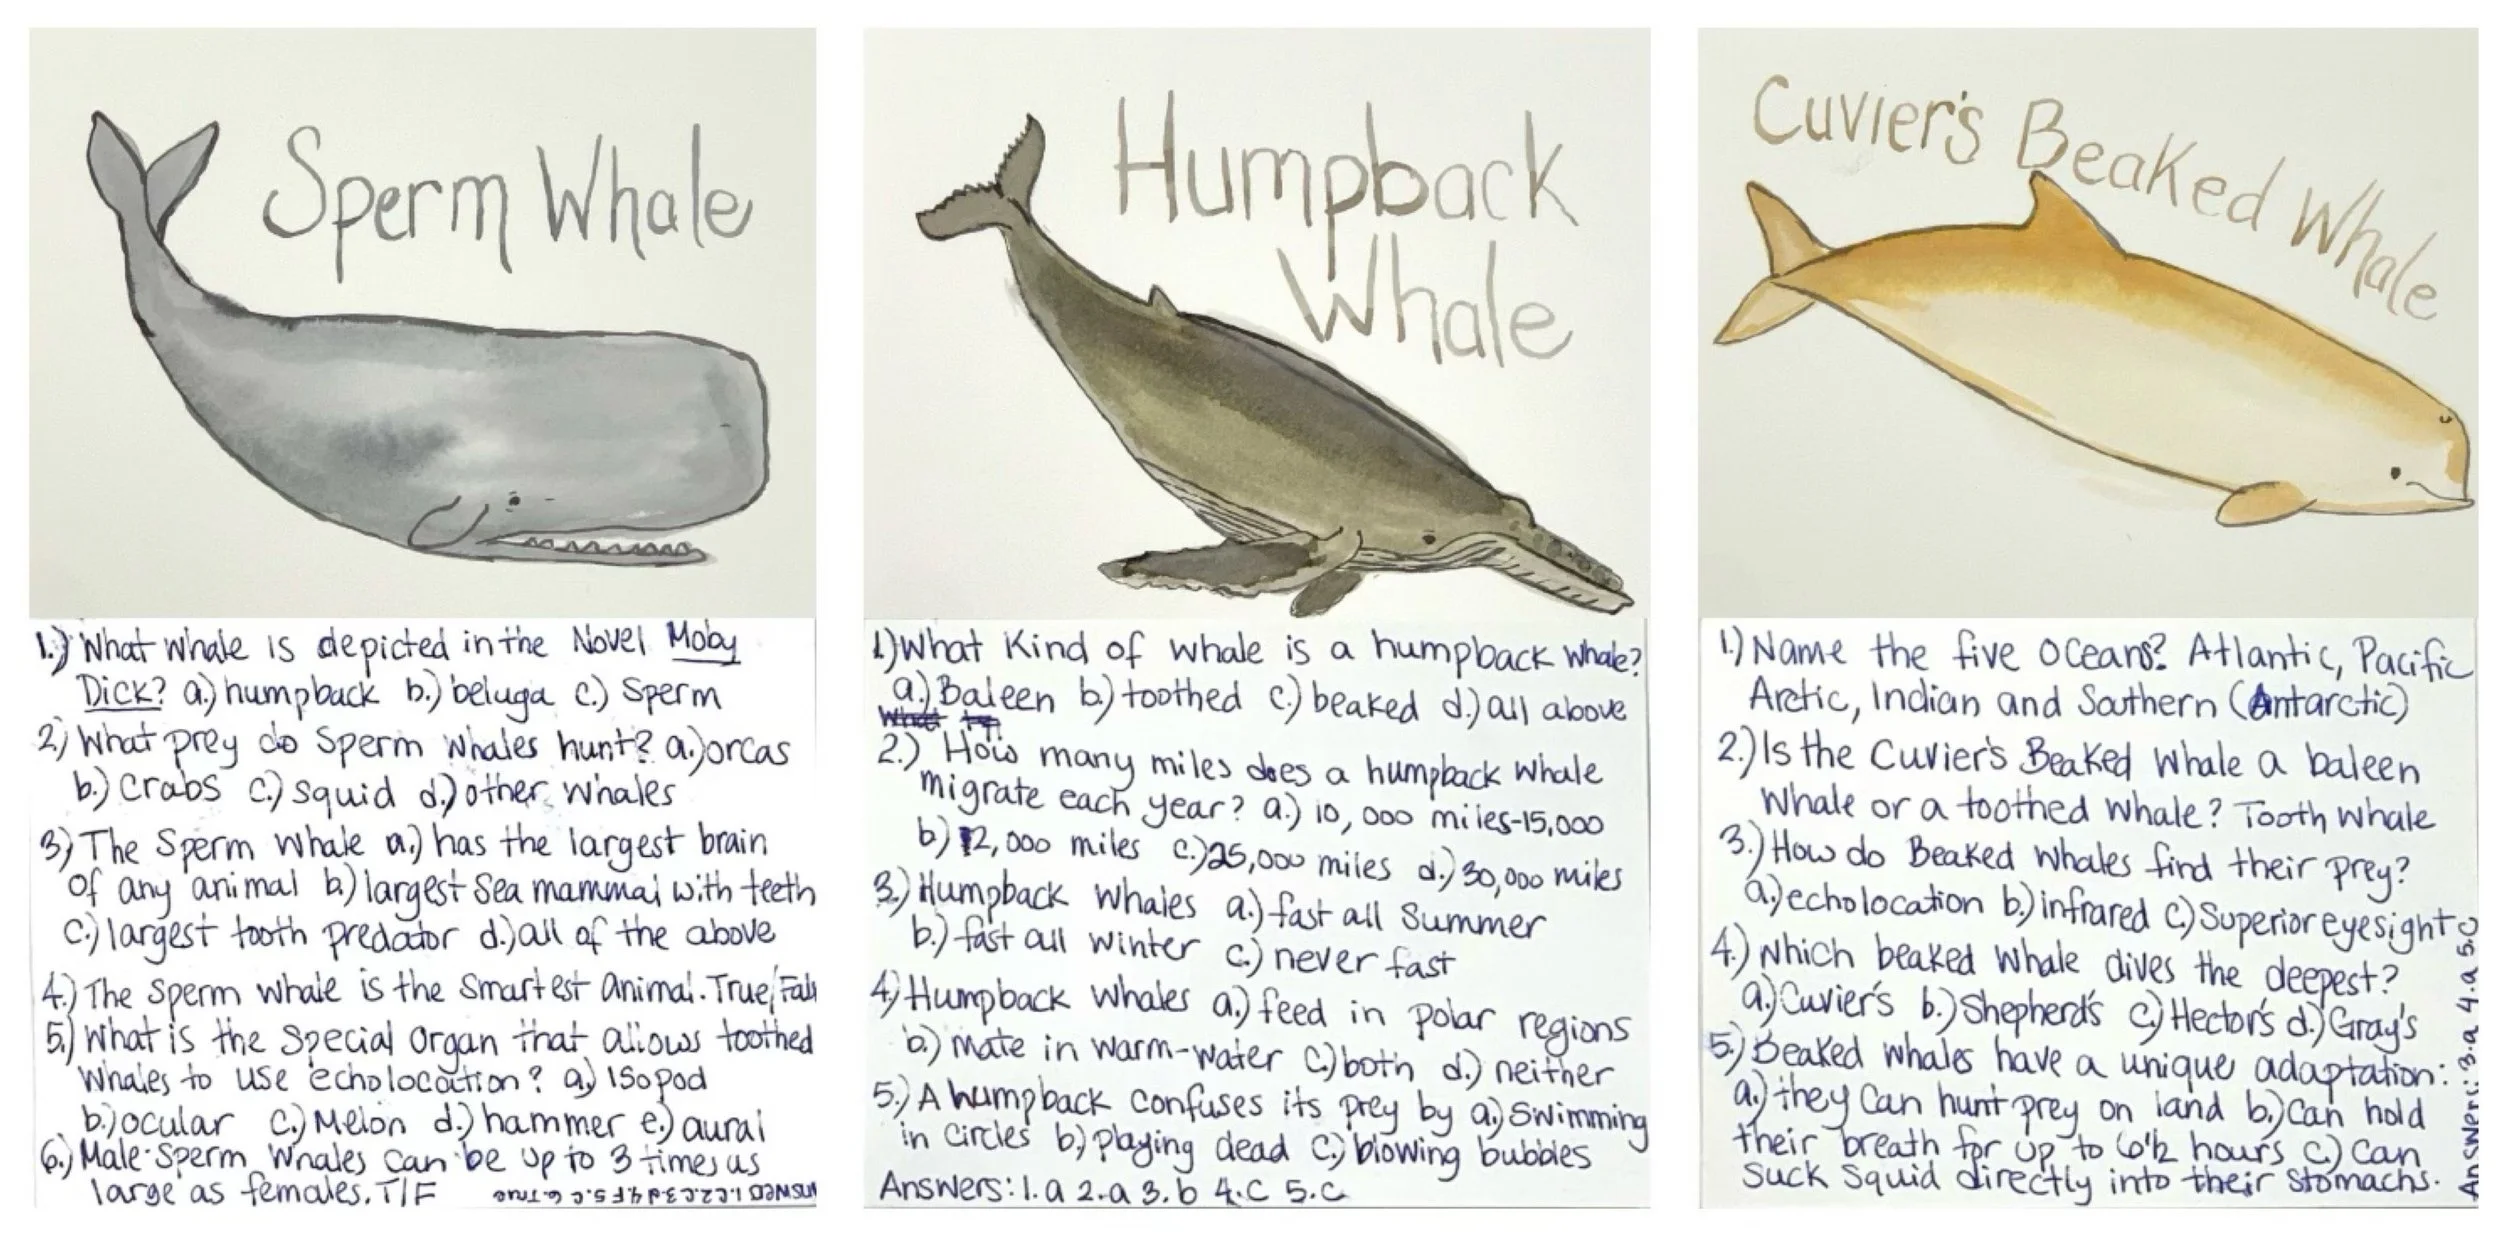 Sperm Whale
1.) What whale is depicted in the Novel Moby
Dick? a.) humpback b.) beluga c.) Sperm
2.) What prey do Sperm whales hunt? a.) orcas
b.) Crabs c.) squid d.) other whales
3.) The Sperm whale a.) has the largest brain
of any animal b.) largest Sea mammal with teeth
c.) largest tooth predator d.) all of the above
4.) The Sperm whale is the Smartest Animal. True/Fals
5.) What is the Special Organ that allows toothed
Whales to use echolocation? a.) Isopod
b.) ocular c.) Melon d.) hammer e.) aural
6.) Male Sperm Whales can be up to 3 times as
large as females. T/F
Answers 1.C 2.C 3.d 4.F 5.C 6.True
Humpback
Whale
1.) What Kind of whale is a humpback whale?
a.) Baleen b.) toothed c.) beaked d.) all above
2.) How many miles does a humpback whale
migrate each year? a.) 10,000 miles-15,000
b.) 12,000 miles c.) 25,000 miles d.) 30,000 miles
3.) Humpback Whales a.) fast all Summer
b.) fast all winter c.) never fast
4.) Humpback Whales a.) feed in polar regions
b.) mate in warm-water c.) both d.) neither
5.) A humpback confuses its prey by a.) Swimming
in Circles b.) playing dead c.) blowing bubbles
Answers: 1.a 2.a 3.b 4.C 5.C
Cuvier's Beaked Whale
1.) Name the five Oceans? Atlantic, Pacific
Arctic, Indian and Southern (Antarctic)
2.) Is the Cuvier's Beaked Whale a baleen
Whale or a toothed whale? Tooth Whale
3.) How do Beaked Whales find their prey?
a.) echolocation b.) infrared c.) Superior eyesight
4.) Which beaked whale dives the deepest?
a.) Cuvier's b.) Shepherd's c.) Hector's d.) Gray's
5.) Beaked Whales have a unique adaptation:
a.) they Can hunt prey on land b.) Can hold
their breath for up to 6 1/2 hours c.) Can
Suck Squid directly into their Stomachs.
Answers: 3.a 4.a 5.C